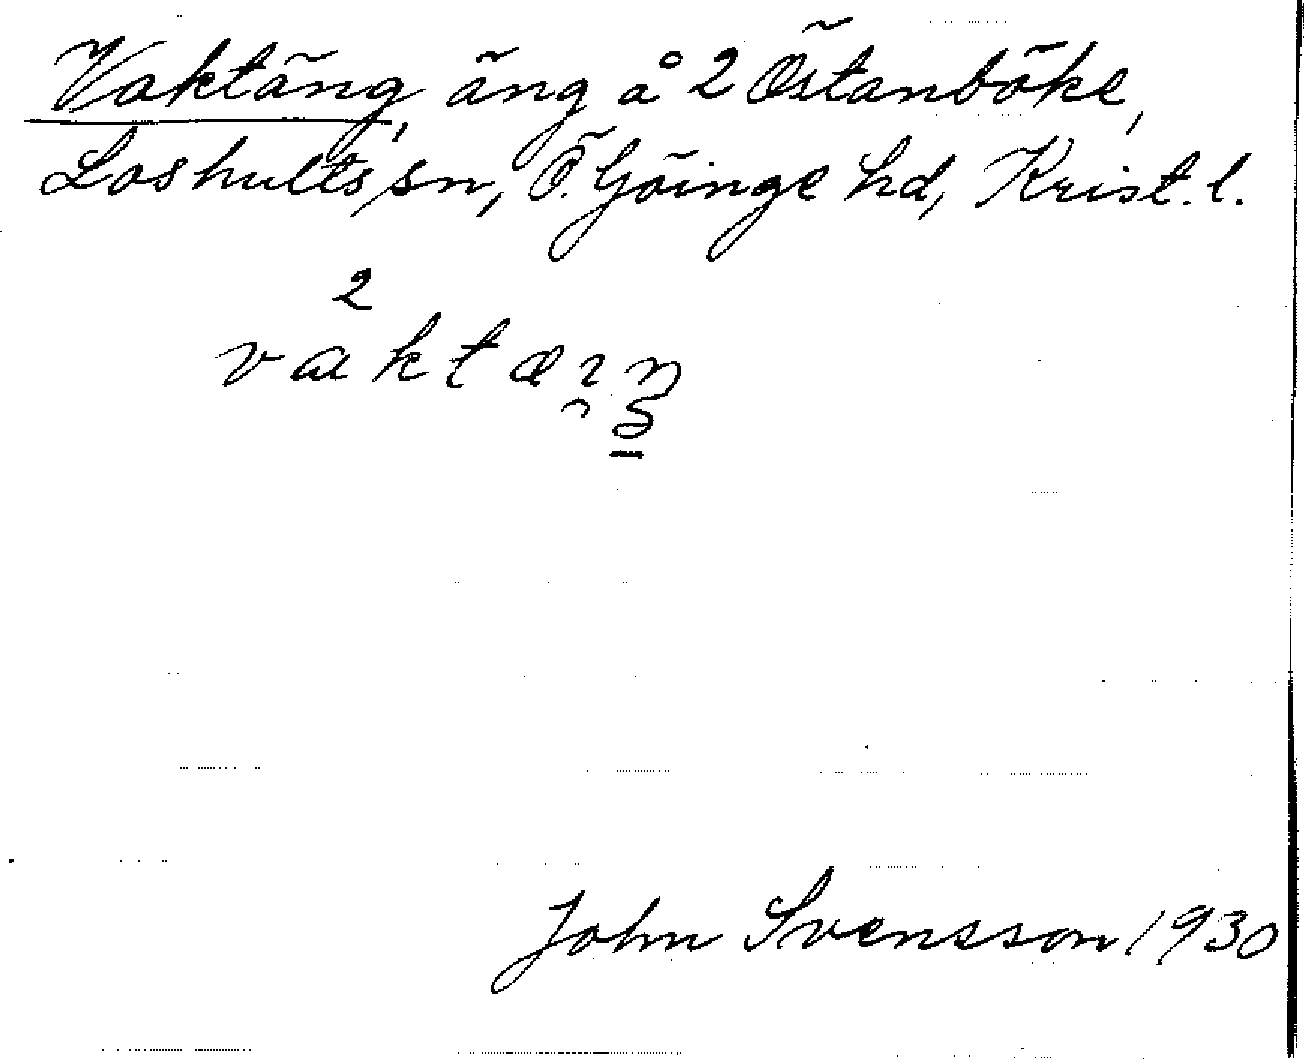 Vaktäng, äng å 2 Östanböke,
Loshults sn, Ö. Göinge hd, Krist. l.
2
vaktæıŋ
John Svensson 1930